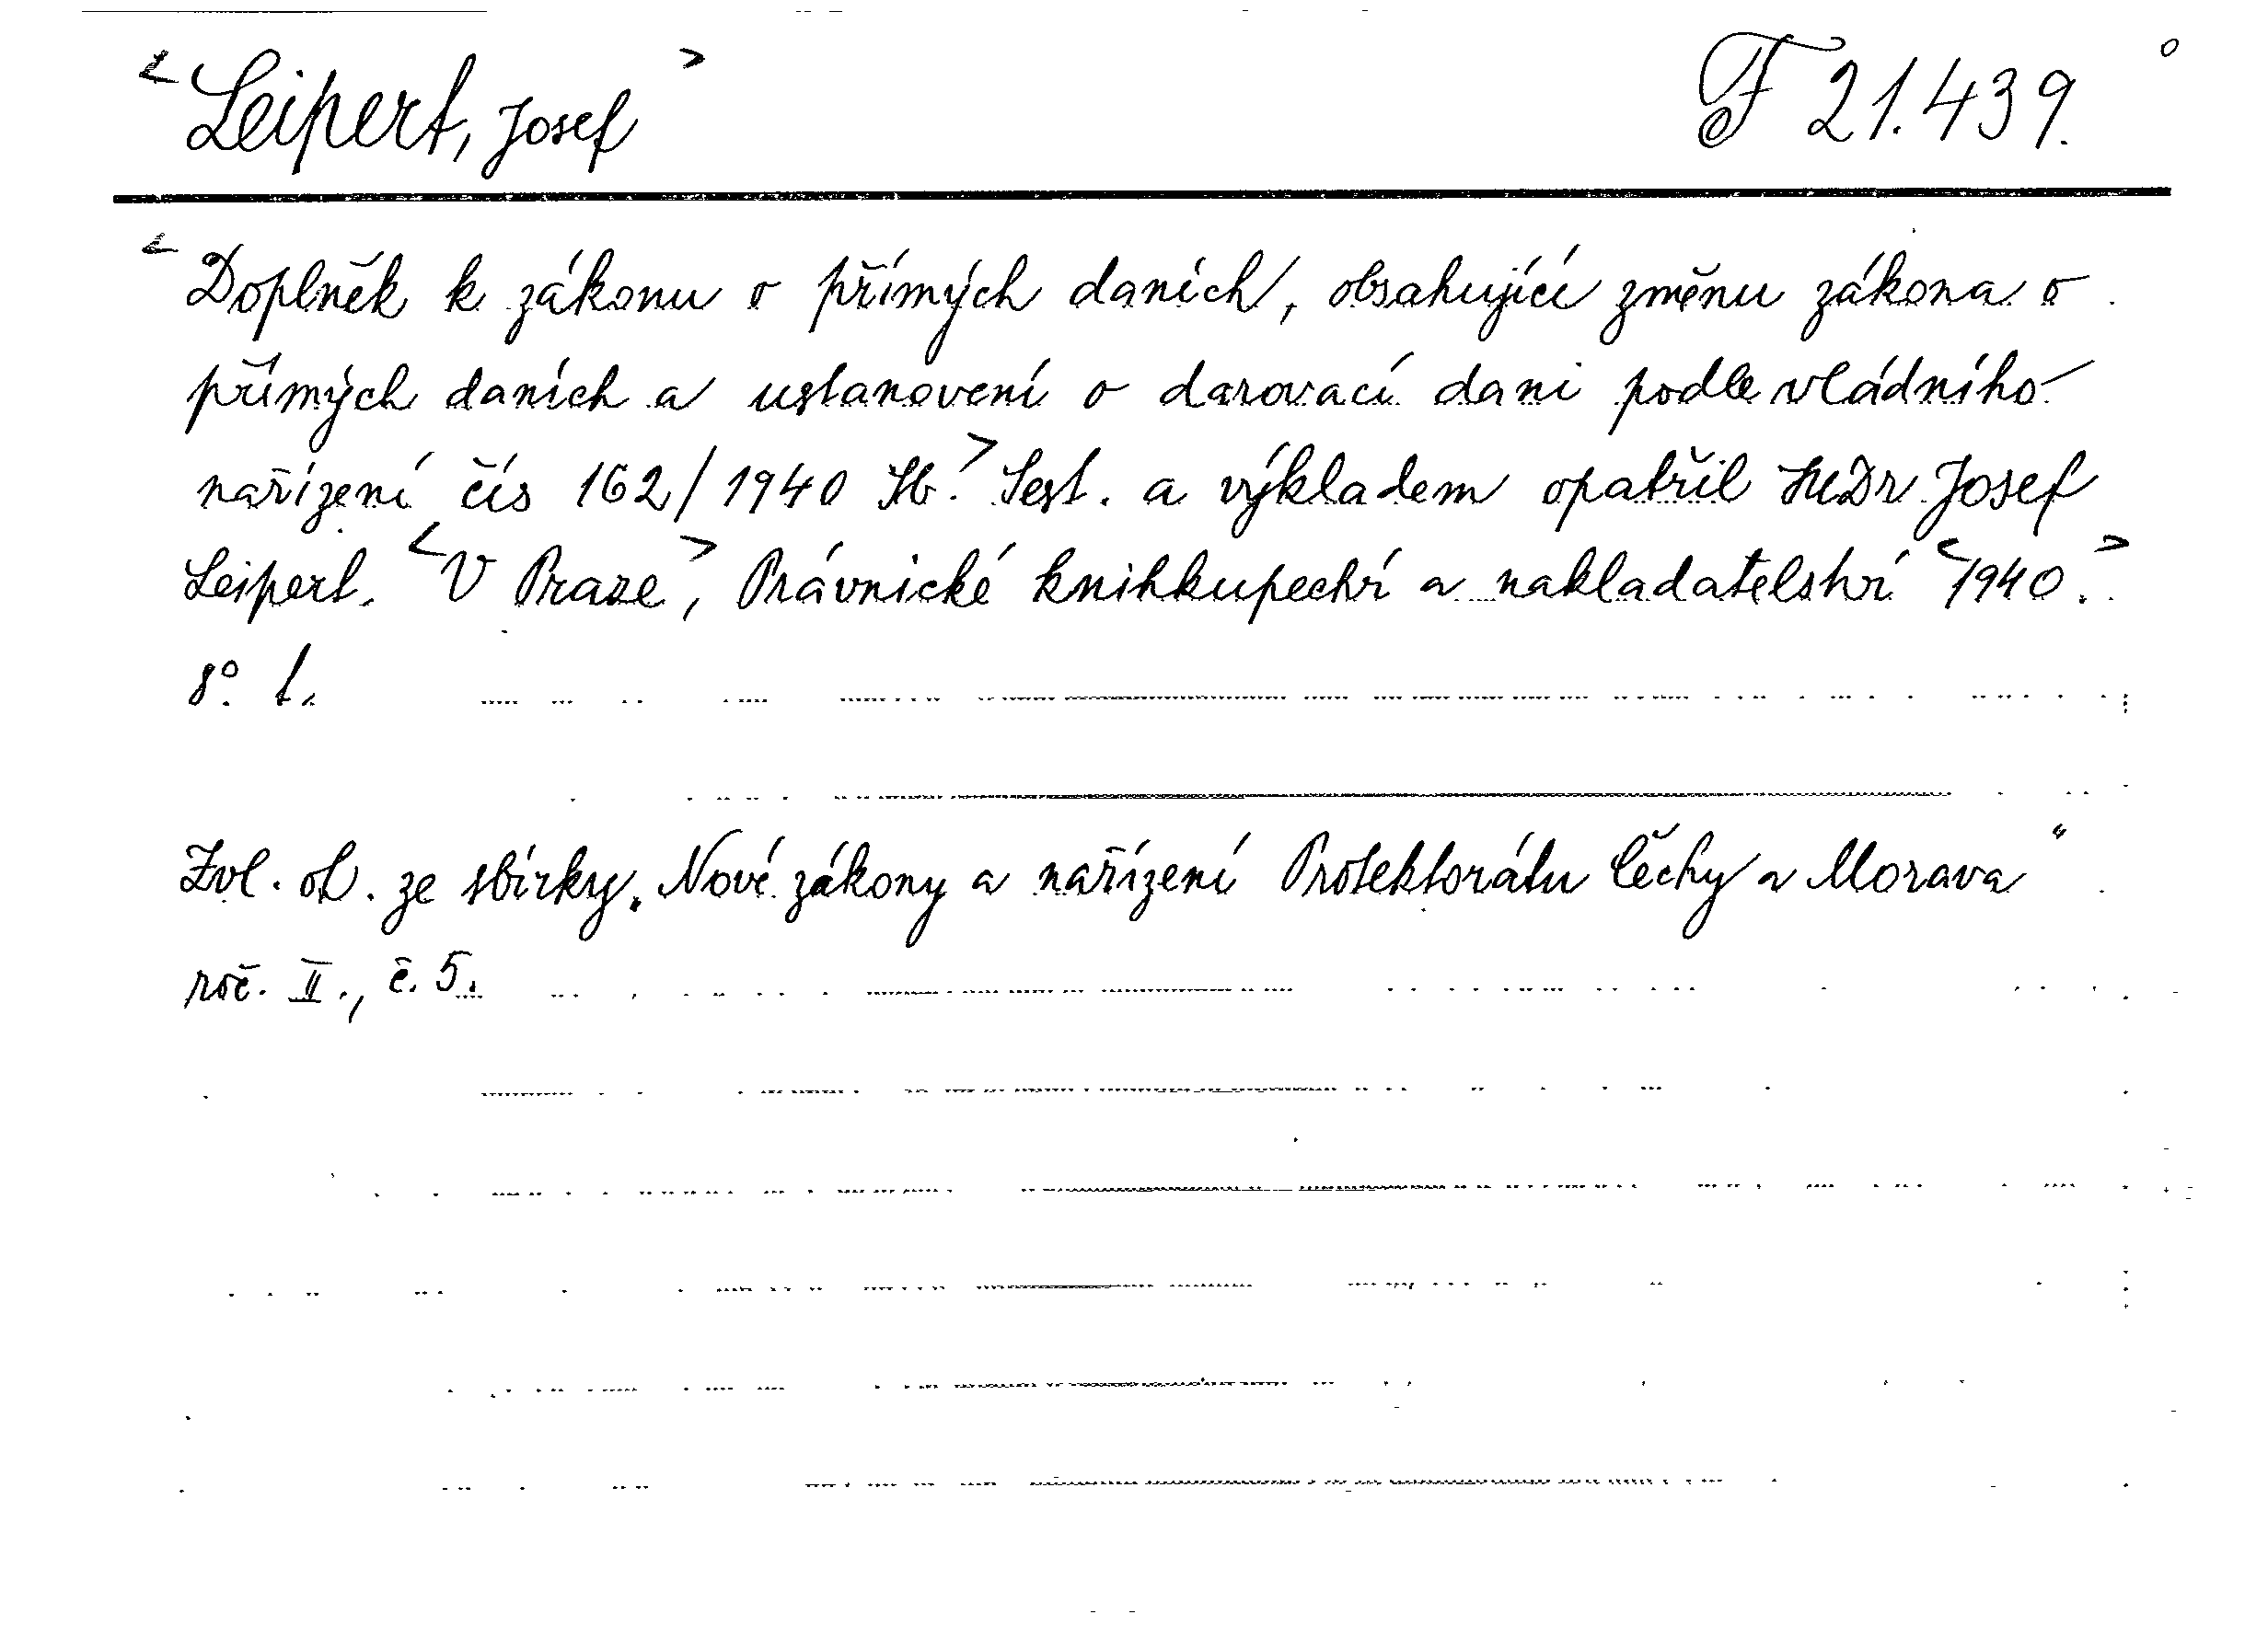 < Leipert, Josef > F 21.439.
< Doplněk k zákonu o přímých daních, obsahující změnu zákona o
přímých daních a ustanovení o darovací dani podle vládního
nařízení čís 162/1940 Sb. > Sest. a výkladem opatřil JUDr Josef
Leipert. < V Praze >, Právnické knihkupectví a nakladatelství < 1940. >
8°.
Zvl. ot. ze sbírky „Nové zákony a nařízení Protektorátu Čechy a Morava“
roč. II., č. 5.